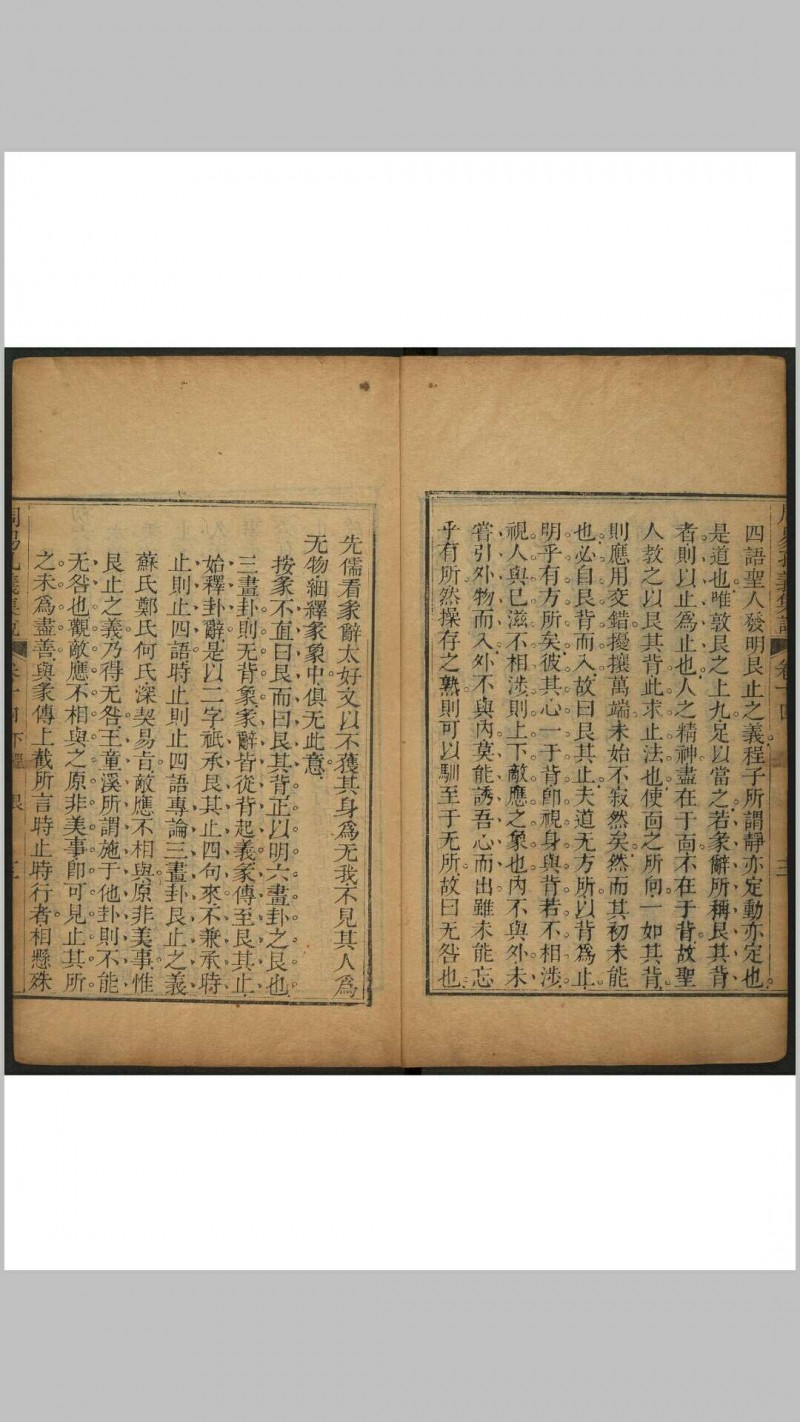 四語聖人發明艮止之義程子所謂靜亦定動亦定也
是道也唯敦艮之上九足以當之若彖辭所稱艮其背
者則以止爲止也人之精神盡在于面不在于背故聖
人敎之以艮其背此求止法也使面之所向一如其背
則應用交錯擾攘萬端未始不寂然矣然而其初未能
也必自艮背而入故曰艮其止夫道无方所以背爲止
明乎有方所矣彼其心一于背卽視身與背若不相涉
視人與已滋不相涉則上下敵應之象也內不與外未
嘗引外物而入外不與內莫能誘吾心而出雖未能忘
乎有所然操存之熟則可以馴至于无所故曰无咎也
卷十四
先儒看彖辭太好文以不獲其身爲无我不見其人爲
无物細釋彖象中俱无此意
按彖不直曰艮而曰艮其背正以明六畫卦之艮也
三畫卦則无背象彖辭皆從背起義彖傳至艮其止
始釋卦辭是以二字祇承艮其止四句來不兼承時
止則止四語時止則止四語專論三畫卦艮止之義
蘇氏鄭氏何氏深契易旨敵應不相與原非美事惟
艮止之義乃得无咎王童溪所謂施于他卦則不能
无咎也觀敵應不相與之原非美事卽可見止其所
之未爲盡善與彖傳上截所言時止時行者相懸殊